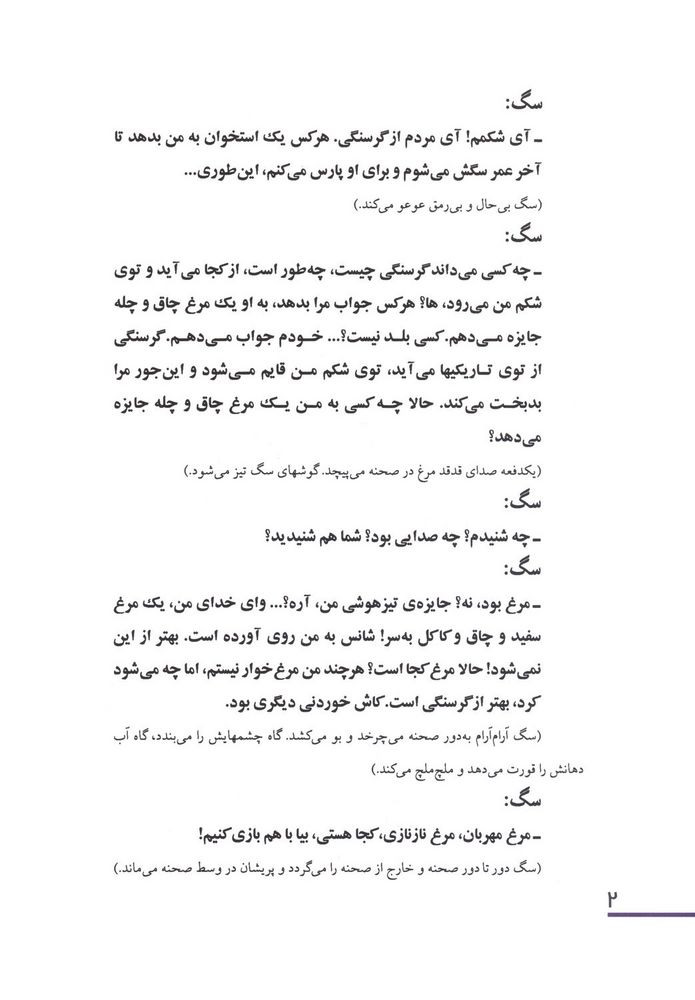 سگ:
ـ آی شکمم! آی مردم از گرسنگی. هرکس یک استخوان به من بدهد تا
آخر عمر سگش می‌شوم و برای او پارس می‌کنم، این‌طوری...
(سگ بی‌حال و بی‌رمق عوعو می‌کند.)
سگ:
ـ چه کسی می‌داند گرسنگی چیست، چه‌طور است، از کجا می‌آید و توی
شکم من می‌رود، ها؟ هرکس جواب مرا بدهد، به او یک مرغ چاق و چله
جایزه می‌دهم. کسی بلد نیست؟... خودم جواب می‌دهم. گرسنگی
از توی تاریکیها می‌آید، توی شکم من قایم می‌شود و این‌جور مرا
بدبخت می‌کند. حالا چه کسی به من یک مرغ چاق و چله جایزه
می‌دهد؟
(یکدفعه صدای قدقد مرغ در صحنه می‌پیچد. گوشهای سگ تیز می‌شود.)
سگ:
ـ چه شنیدم؟ چه صدایی بود؟ شما هم شنیدید؟
سگ:
ـ مرغ بود، نه؟ جایزه‌ی تیزهوشی من، آره؟... وای خدای من، یک مرغ
سفید و چاق و کاکل به‌سر! شانس به من روی آورده است. بهتر از این
نمی‌شود! حالا مرغ کجا است؟ هرچند من مرغ‌خوار نیستم، اما چه می‌شود
کرد، بهتر از گرسنگی است. کاش خوردنی دیگری بود.
(سگ آرام‌آرام به‌دور صحنه می‌چرخد و بو می‌کشد. گاه چشمهایش را می‌بندد، گاه آب
دهانش را قورت می‌دهد و ملچ‌ملچ می‌کند.)
سگ:
ـ مرغ مهربان، مرغ نازنازی، کجا هستی، بیا با هم بازی کنیم!
(سگ دور تا دور صحنه و خارج از صحنه را می‌گردد و پریشان در وسط صحنه می‌ماند.)
۲